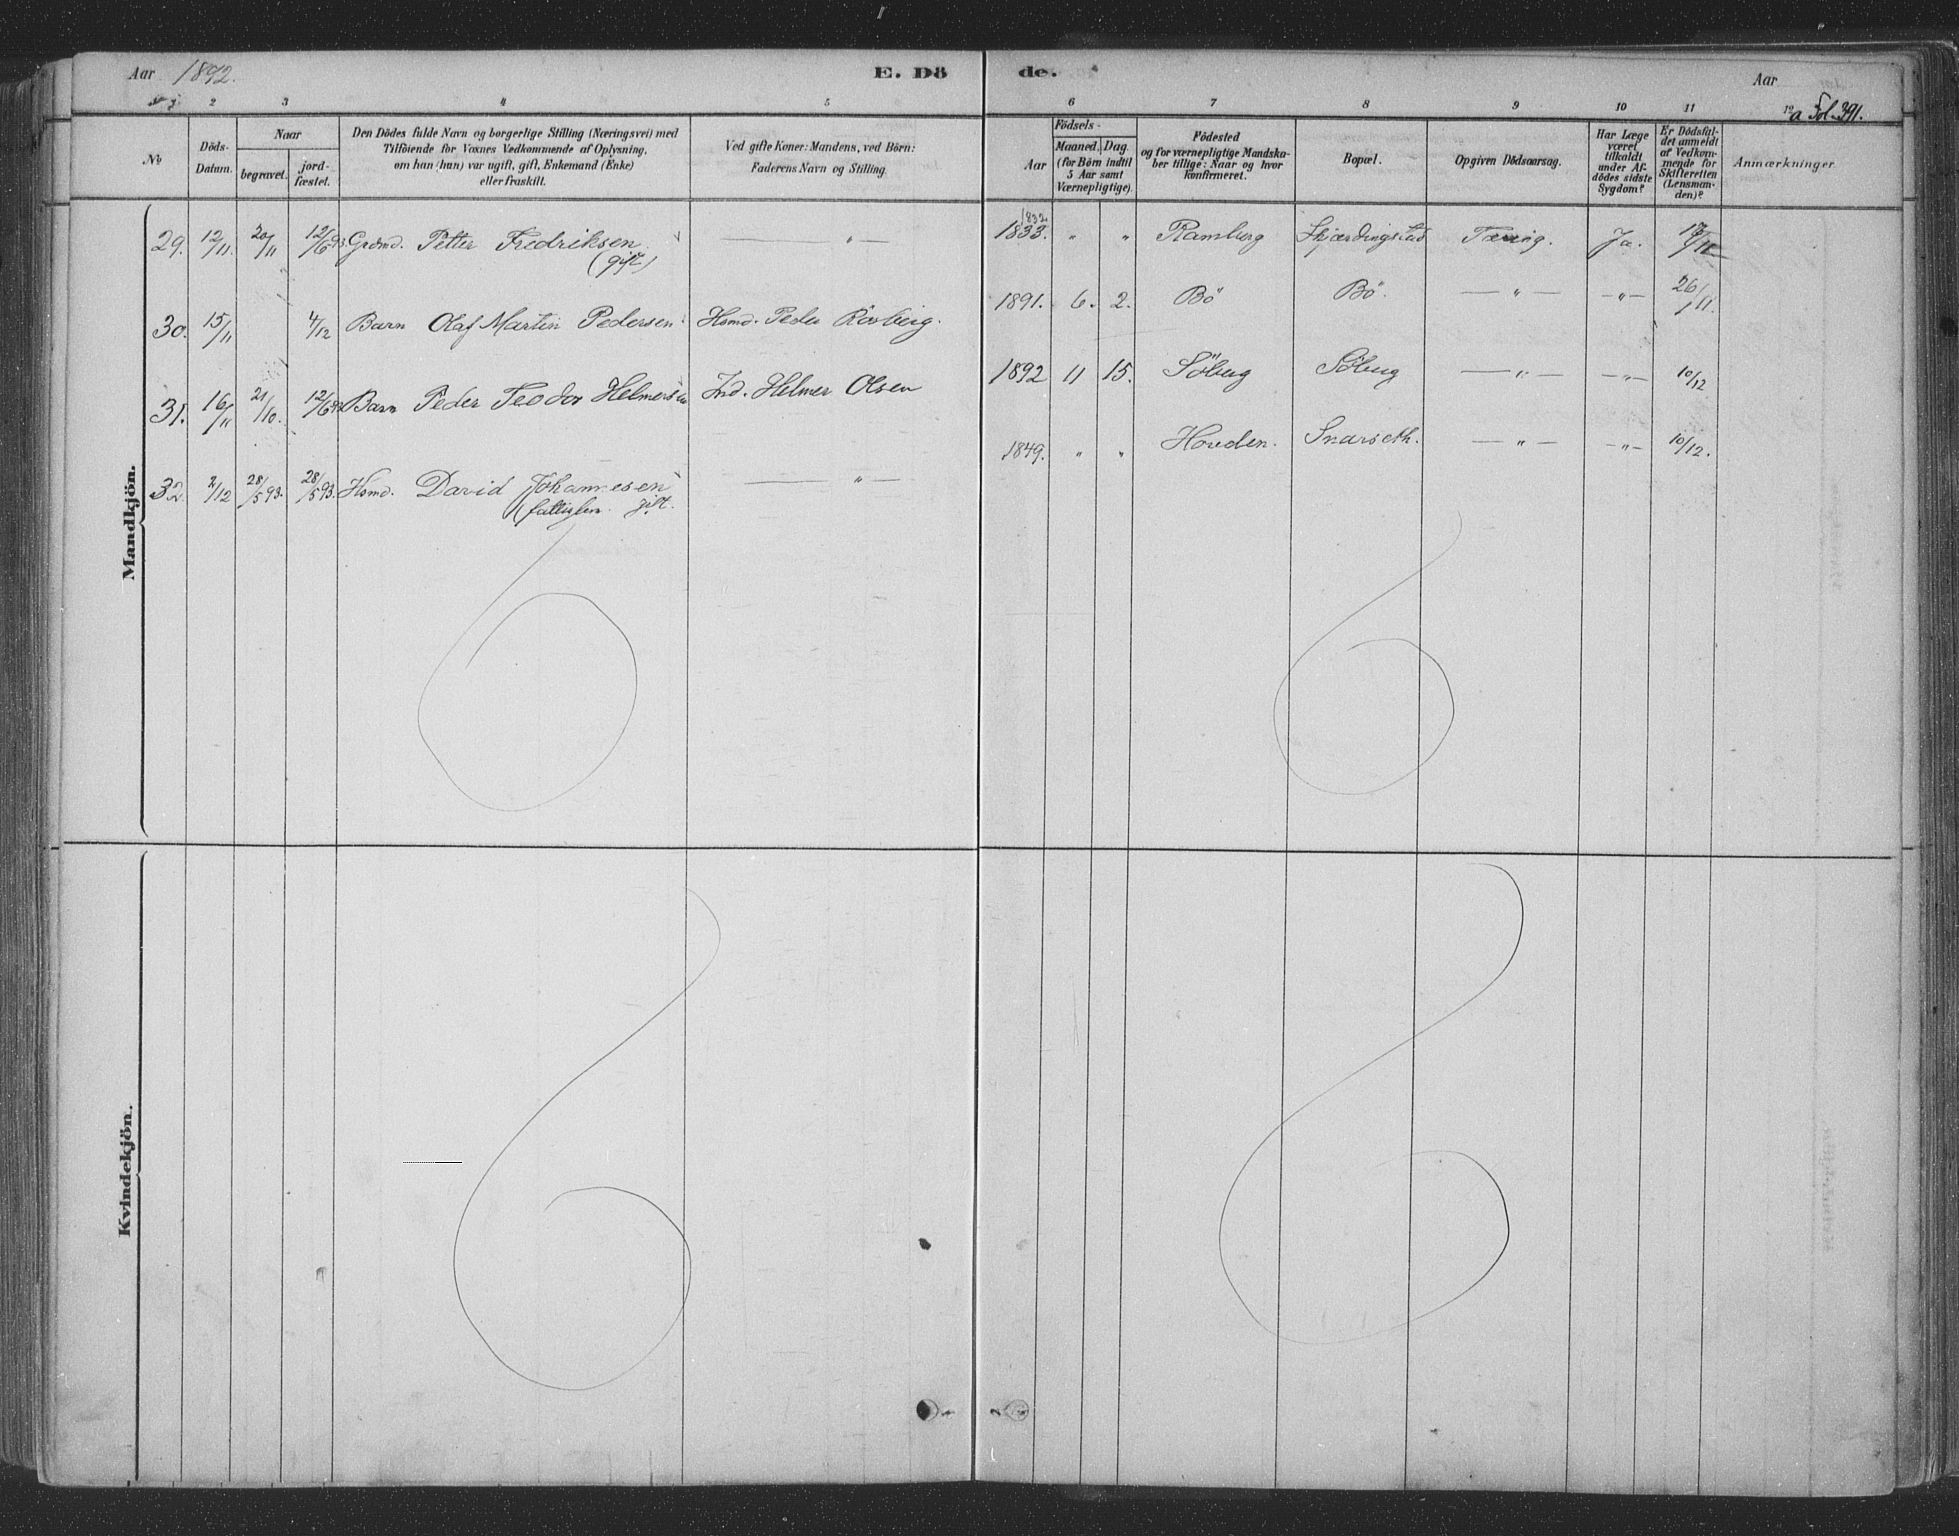 Aar 1892. E. Dö de. Aar
1 2 3 4 5 6 7 8 9 10 11 12 a Fol. 391.
No
Döds-
Datum.
Naar
begravet.
jord-
fæstet.
Den Dödes fulde Navn og borgerlige Stilling (Næringsvei) med
Tilföiende for Voxnes Vedkommende af Oplysning,
om han (hun) var ugift, gift, Enkemand (Enke)
eller fraskilt.
Ved gifte Koner: Mandens, ved Börn:
Faderens Navn og Stilling.
Födsels-
Aar
Maaned. Dag.
(for Börn indtil
5 Aar samt
Værnepligtige).
Födested
og for værnepligtige Mandska-
ber tillige: Naar og hvor
konfirmeret.
Bopæl.
Opgiven Dödsaarsag.
Har Læge
været
tilkaldt
under Af-
dödes sidste
Sygdom?
Er Dödsfal-
det anmeldt
af Vedkom-
mende for
Skifteretten
(Lensman-
den)?
Anmærkninger
Mandkjön.
29. 12/11. 20/11 12/6 93. Grdmd. Petter Fredriksen — " — 1832 1833. " " Ramberg Skjærdingstad Tæring. Ja. 17/11
(gift)
30. 15/11 4/12 Barn Olaf Martin Pedersen Hsmd. Peder Rösberg. 1891. 6. 2. Bö Bö. — " — — " — 26/11.
31. 16/11 21/10. 12/6 93. Barn Peder Teodor Helmersen Ind. Helmer Olsen 1892 11 15. Söberg Söberg — " — — " — 10/12
32. 2/12 28/5 93. 28/5 93. Hsmd. David Johannesen — " — 1849. " " Hovden. Snarseth. — " — — " — 10/12.
(fattiglem. gift.
Kvindekjön.